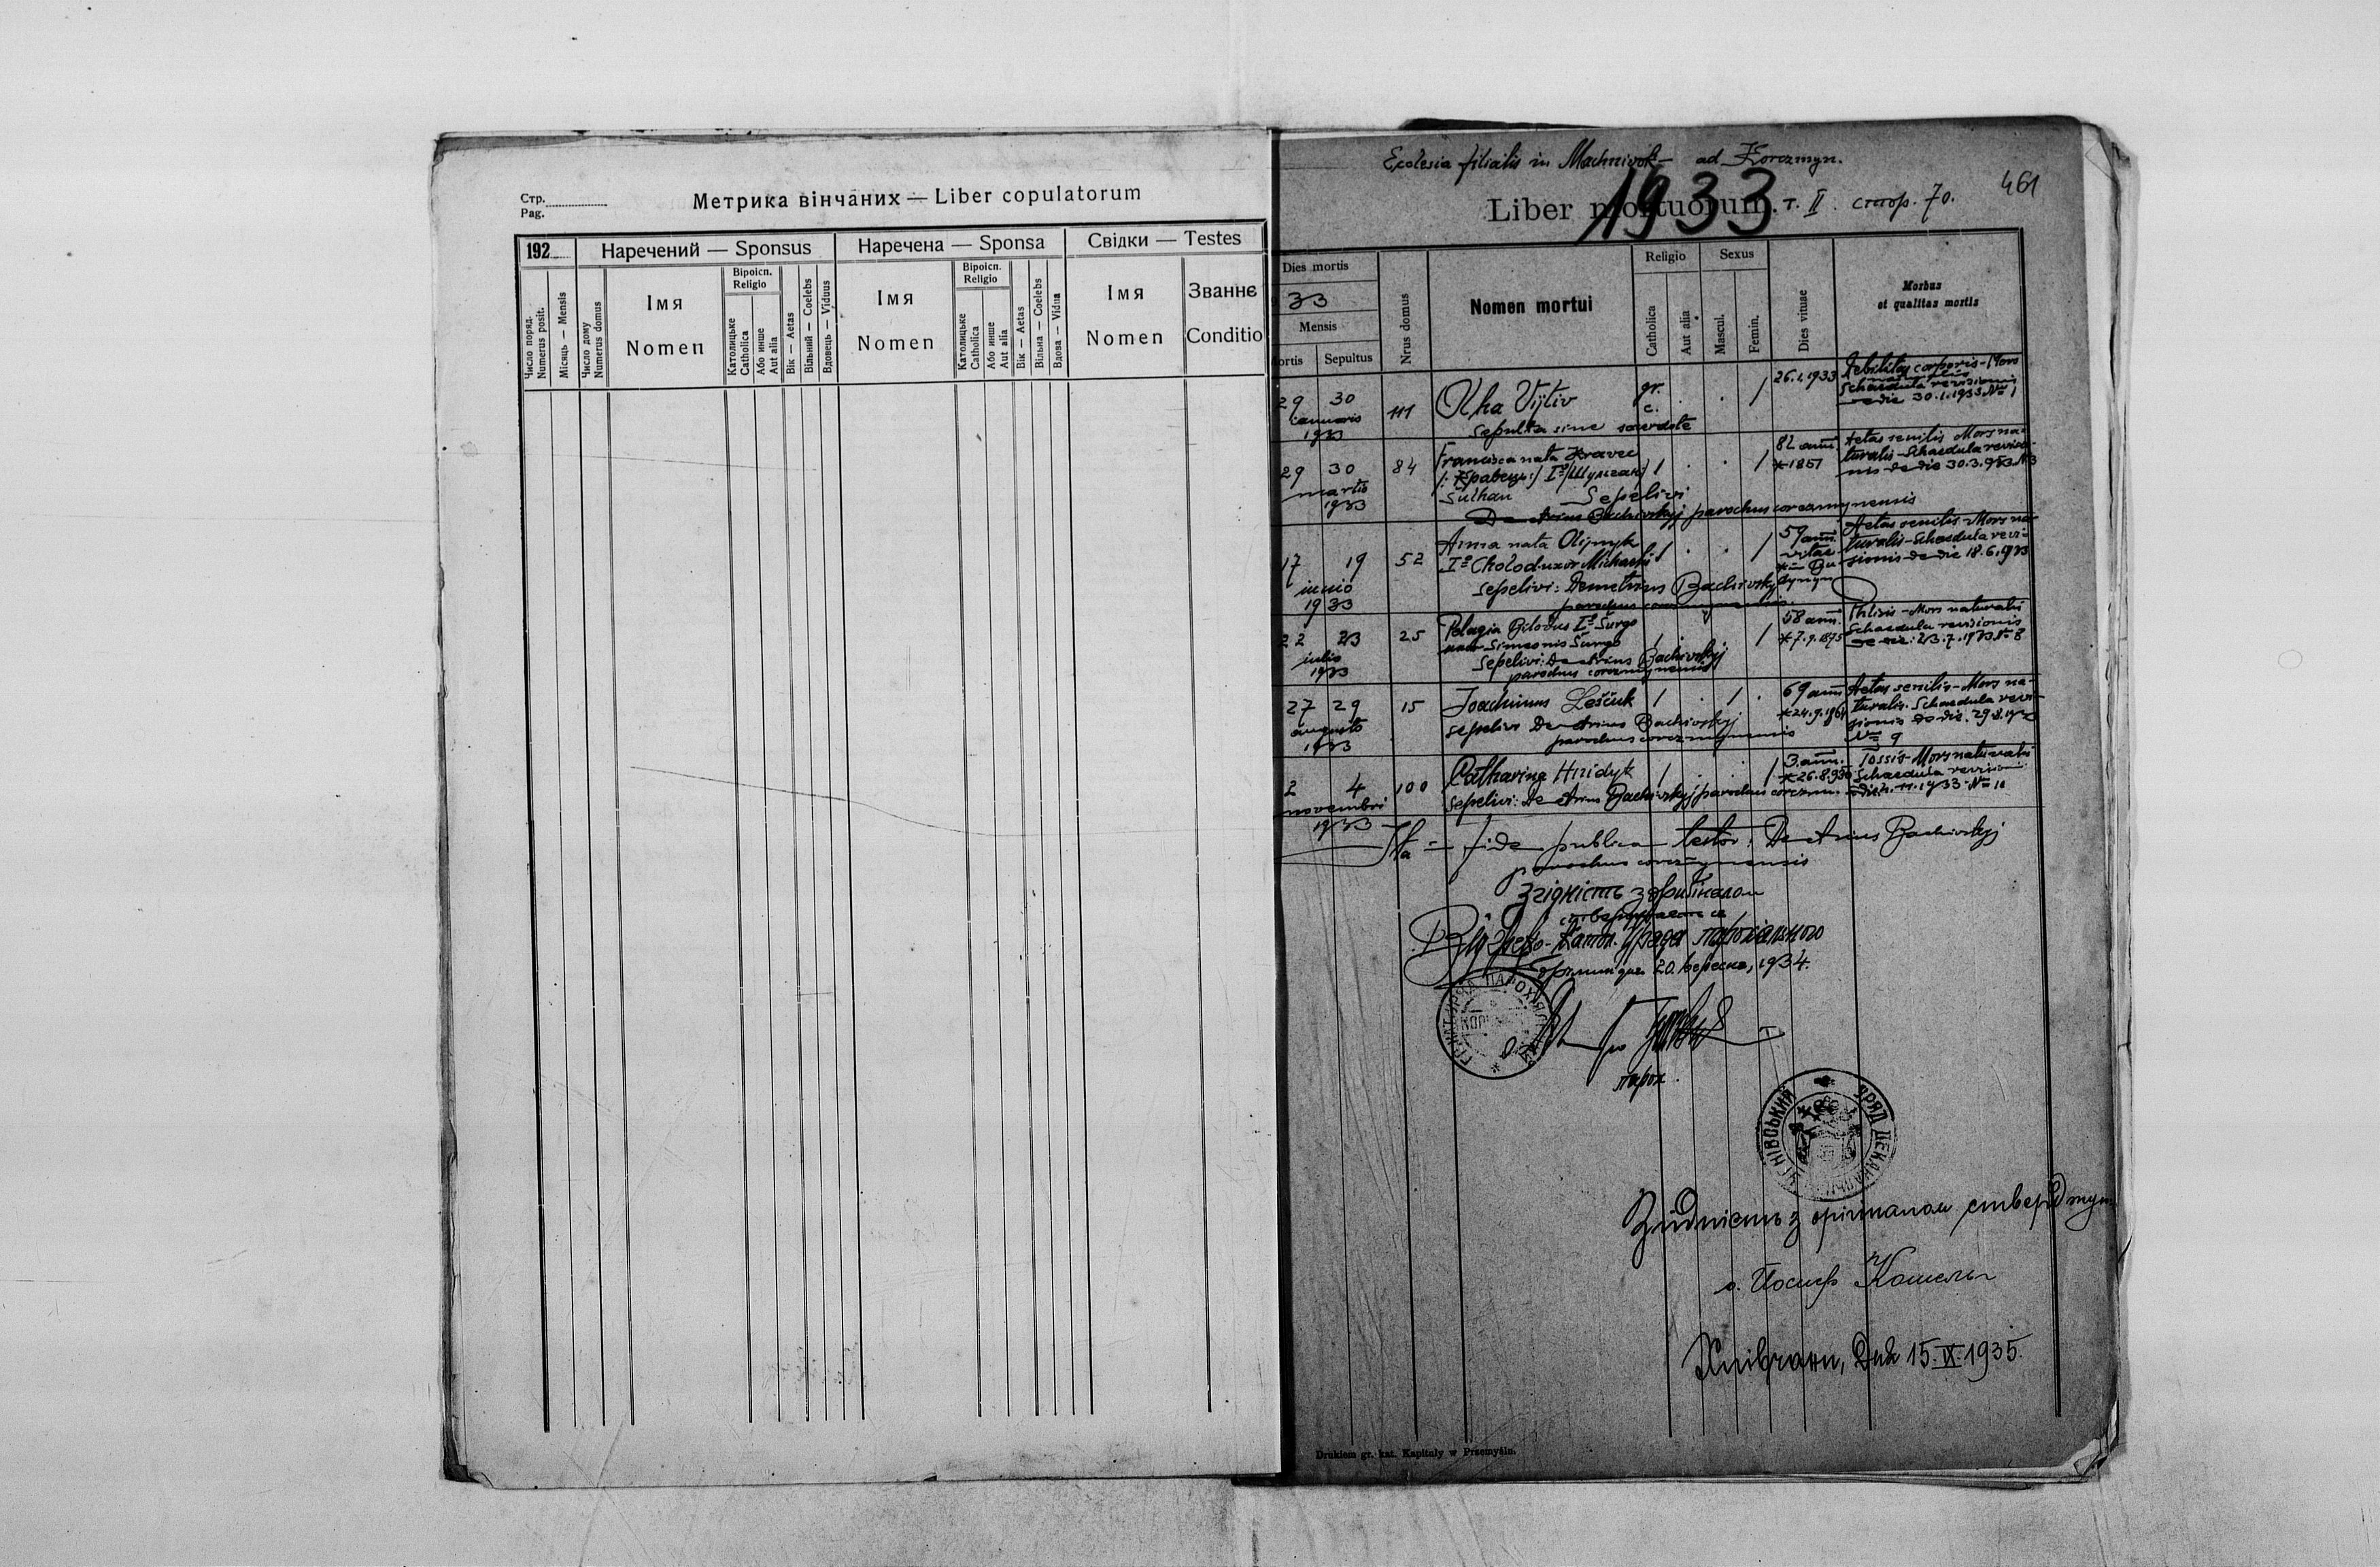 Стр.
Pag.
Метрика вінчаних — Liber copulatorum
192
Наречений — Sponsus
Наречена — Sponsa
Свідки — Testes
Число поряд.
Numerus posit.
Місяць — Mensis
Число дому
Numerus domus
Імя
Nomen
Віроісп.
Religio
Католицьке
Catholica
Або инше
Aut alia
Вік — Aetas
Вільний — Coelebs
Вдовець — Viduus
Імя
Nomen
Віроісп.
Religio
Католицьке
Catholica
Або инше
Aut alia
Вік — Aetas
Вільна — Coelebs
Вдова — Vidua
Імя
Nomen
Званнє
Conditio
Ecclesia filialis in Machnivok ad Korczmyn.
461
1933
Liber mortuorum. т. II. стор. 70.
Dies mortis
33
Mensis
ortis
Sepultus
Nrus domus
Nomen mortui
Religio
Catholica
Aut alia
Sexus
Mascul.
Femin.
Dies vitae
Morbus
et qualitas mortis
29 30
1933
111
Olha Vijtiv
gr.
c.
sepulta sine
26.1.1933
Debilitas corporis - Mors
Schaedula revisionis
de die 30.1.1933 № 1
29 30
martio
1933
84
Francisca nata Kravec
/: Кравець :/ I° /Шульган/
Sulhan Sepelivi
Demetrius Bachivskyj parochus corczmynensis
82 ann.
*1851
Aetas senilis Mors na-
turalis - Schaedula revisio-
nis de die 30.3.933 № 3
17 19
junio
1933
52
Anna nata Olijnyk
I° Cholod uxor Michaelis
sepelivi: Demetrius Bachivskyj
parochus corczmynensis
59 ann.
vitae
Aetas senilis - Mors na-
turalis - Schaedula revi-
sionis de die 18.6.1933
22 23
julio
1933
25
Pelagia Bilous I° Šurgo
uxor Simeonis Šurgo
sepelivi: Demetrius Bachivskyj
parochus corczmynensis
58 ann.
*7.9.1875
Phtisis - Mors naturalis
Schaedula revisionis
de die: 23.7.1933 № 8
27 29
augusto
1933
15
Joachimus Leščuk
sepelivi Demetrius Bachivskyj
parochus corczmynensis
69 ann.
*24.9.1864
Aetas senilis - Mors na-
turalis. Schaedula revi-
sionis de die. 29.8.1933
№ 9
2 4
novembri
1933
100
Catharina Hnidyk
sepelivi: Demetrius Bachivskyj parochus corczmyn.
3. ann.
*26.8.930
Tossis - Mors naturalis
Schaedula revision.
11.1933 № 10
fide publica testor: Demetrius Bachivskyj
parochus corczmynensis
Згідність з оригіналом
стверджається
Уряд парохіяльного
дня 20. вересня, 1934.
парох.
УРЯД ДЕКАНАЛЬНИЙ
Згідність з оригіналом стверджую
о. Йосиф Кошель
Хлівчани, дня 15.IX.1935.
Drukiem gr. kat. Kapituły w Przemyślu.